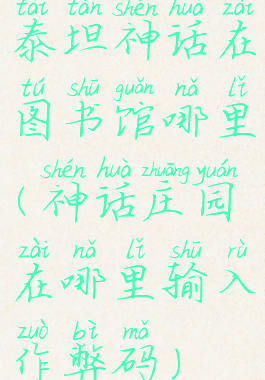 tài tǎn shén huà zài
泰坦神话在
tú shū guǎn nǎ lǐ
图书馆哪里
shén huà zhuāng yuán
(神话庄园
zài nǎ lǐ shū rù
在哪里输入
zuò bì mǎ
作弊码)